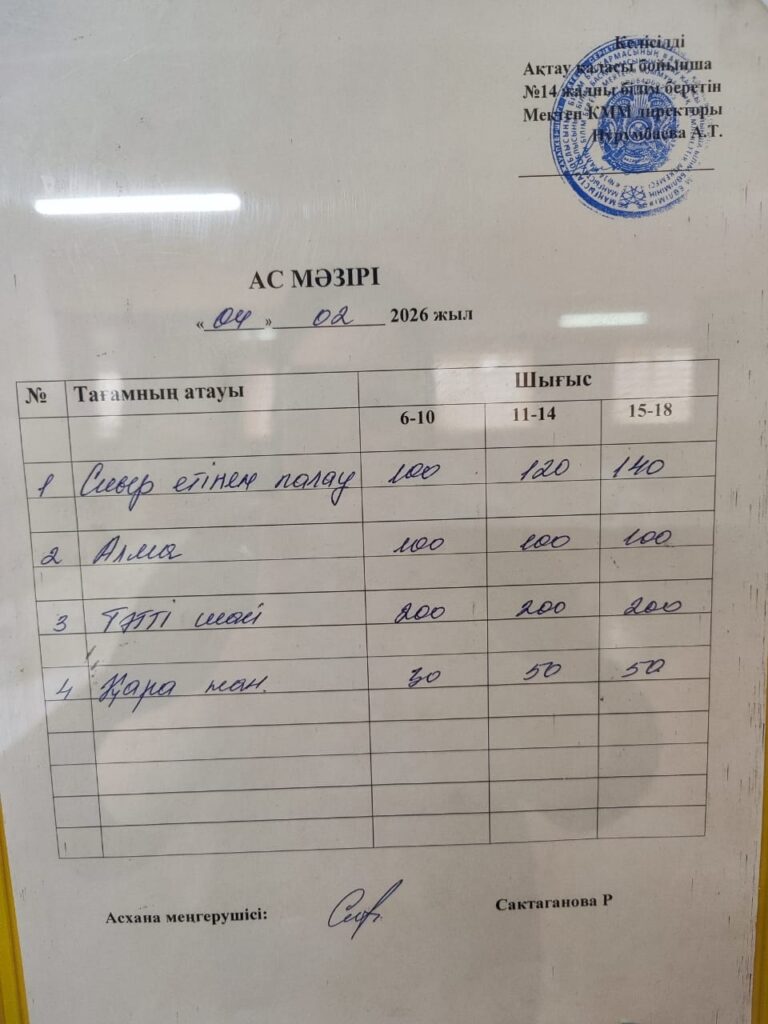 Келісілді
Ақтау қаласы бойынша
№14 жалпы білім беретін
Мектеп КММ директоры
Нурумбаева А.Т.
АС МӘЗІРІ
«04» 02 2026 жыл
№ Тағамның атауы Шығыс
6-10 11-14 15-18
1 Сиыр етінен палау 100 120 140
2 Алма 100 100 100
3 Тәтті шай 200 200 200
4 Қара нан. 30 50 50
Асхана меңгерушісі: Сактаганова Р